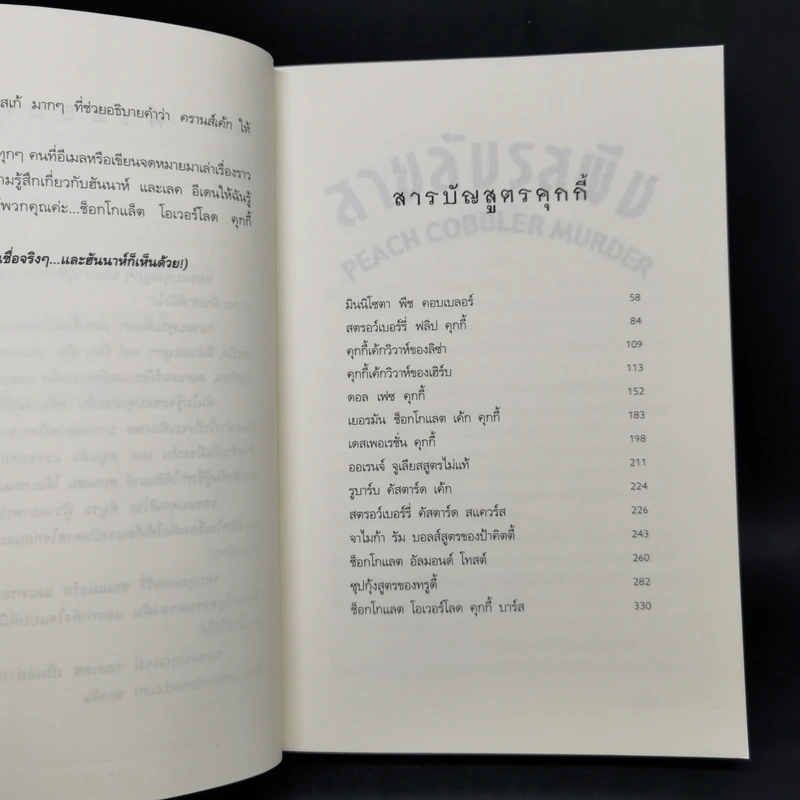 สเก้ มากๆ ที่ช่วยอธิบายคำว่า ครานส์เค้ก ให้
ทุกๆ คนที่อีเมลหรือเขียนจดหมายมาเล่าเรื่องราว
ามรู้สึกเกี่ยวกับฮันนาห์ และเลค อีเดนให้ฉันรู้
พวกคุณค่ะ...ช็อกโกแล็ต โอเวอร์โลด คุกกี้
เชื่อจริงๆ...และฮันนาห์ก็เห็นด้วย!)
สายลับรสพีช
สารบัญสูตรคุกกี้
PEACH COBBLER MURDER
มินนิโซตา พีช คอบเบลอร์ 58
สตรอว์เบอร์รี่ ฟลิป คุกกี้ 84
คุกกี้เค้กวิวาห์ของลิซ่า 109
คุกกี้เค้กวิวาห์ของเฮิร์บ 113
ดอล เฟซ คุกกี้ 152
เยอรมัน ช็อกโกแลต เค้ก คุกกี้ 183
เดสเพอเรชั่น คุกกี้ 198
ออเรนจ์ จูเลียสสูตรไม่แท้ 211
รูบาร์บ คัสตาร์ด เค้ก 224
สตรอว์เบอร์รี่ คัสตาร์ด สแควร์ส 226
จาไมก้า รัม บอลส์สูตรของป้าคิตตี้ 243
ช็อกโกแลต อัลมอนด์ โทสต์ 260
ซุปกุ้งสูตรของทรูดี้ 282
ช็อกโกแลต โอเวอร์โลด คุกกี้ บาร์ส 330